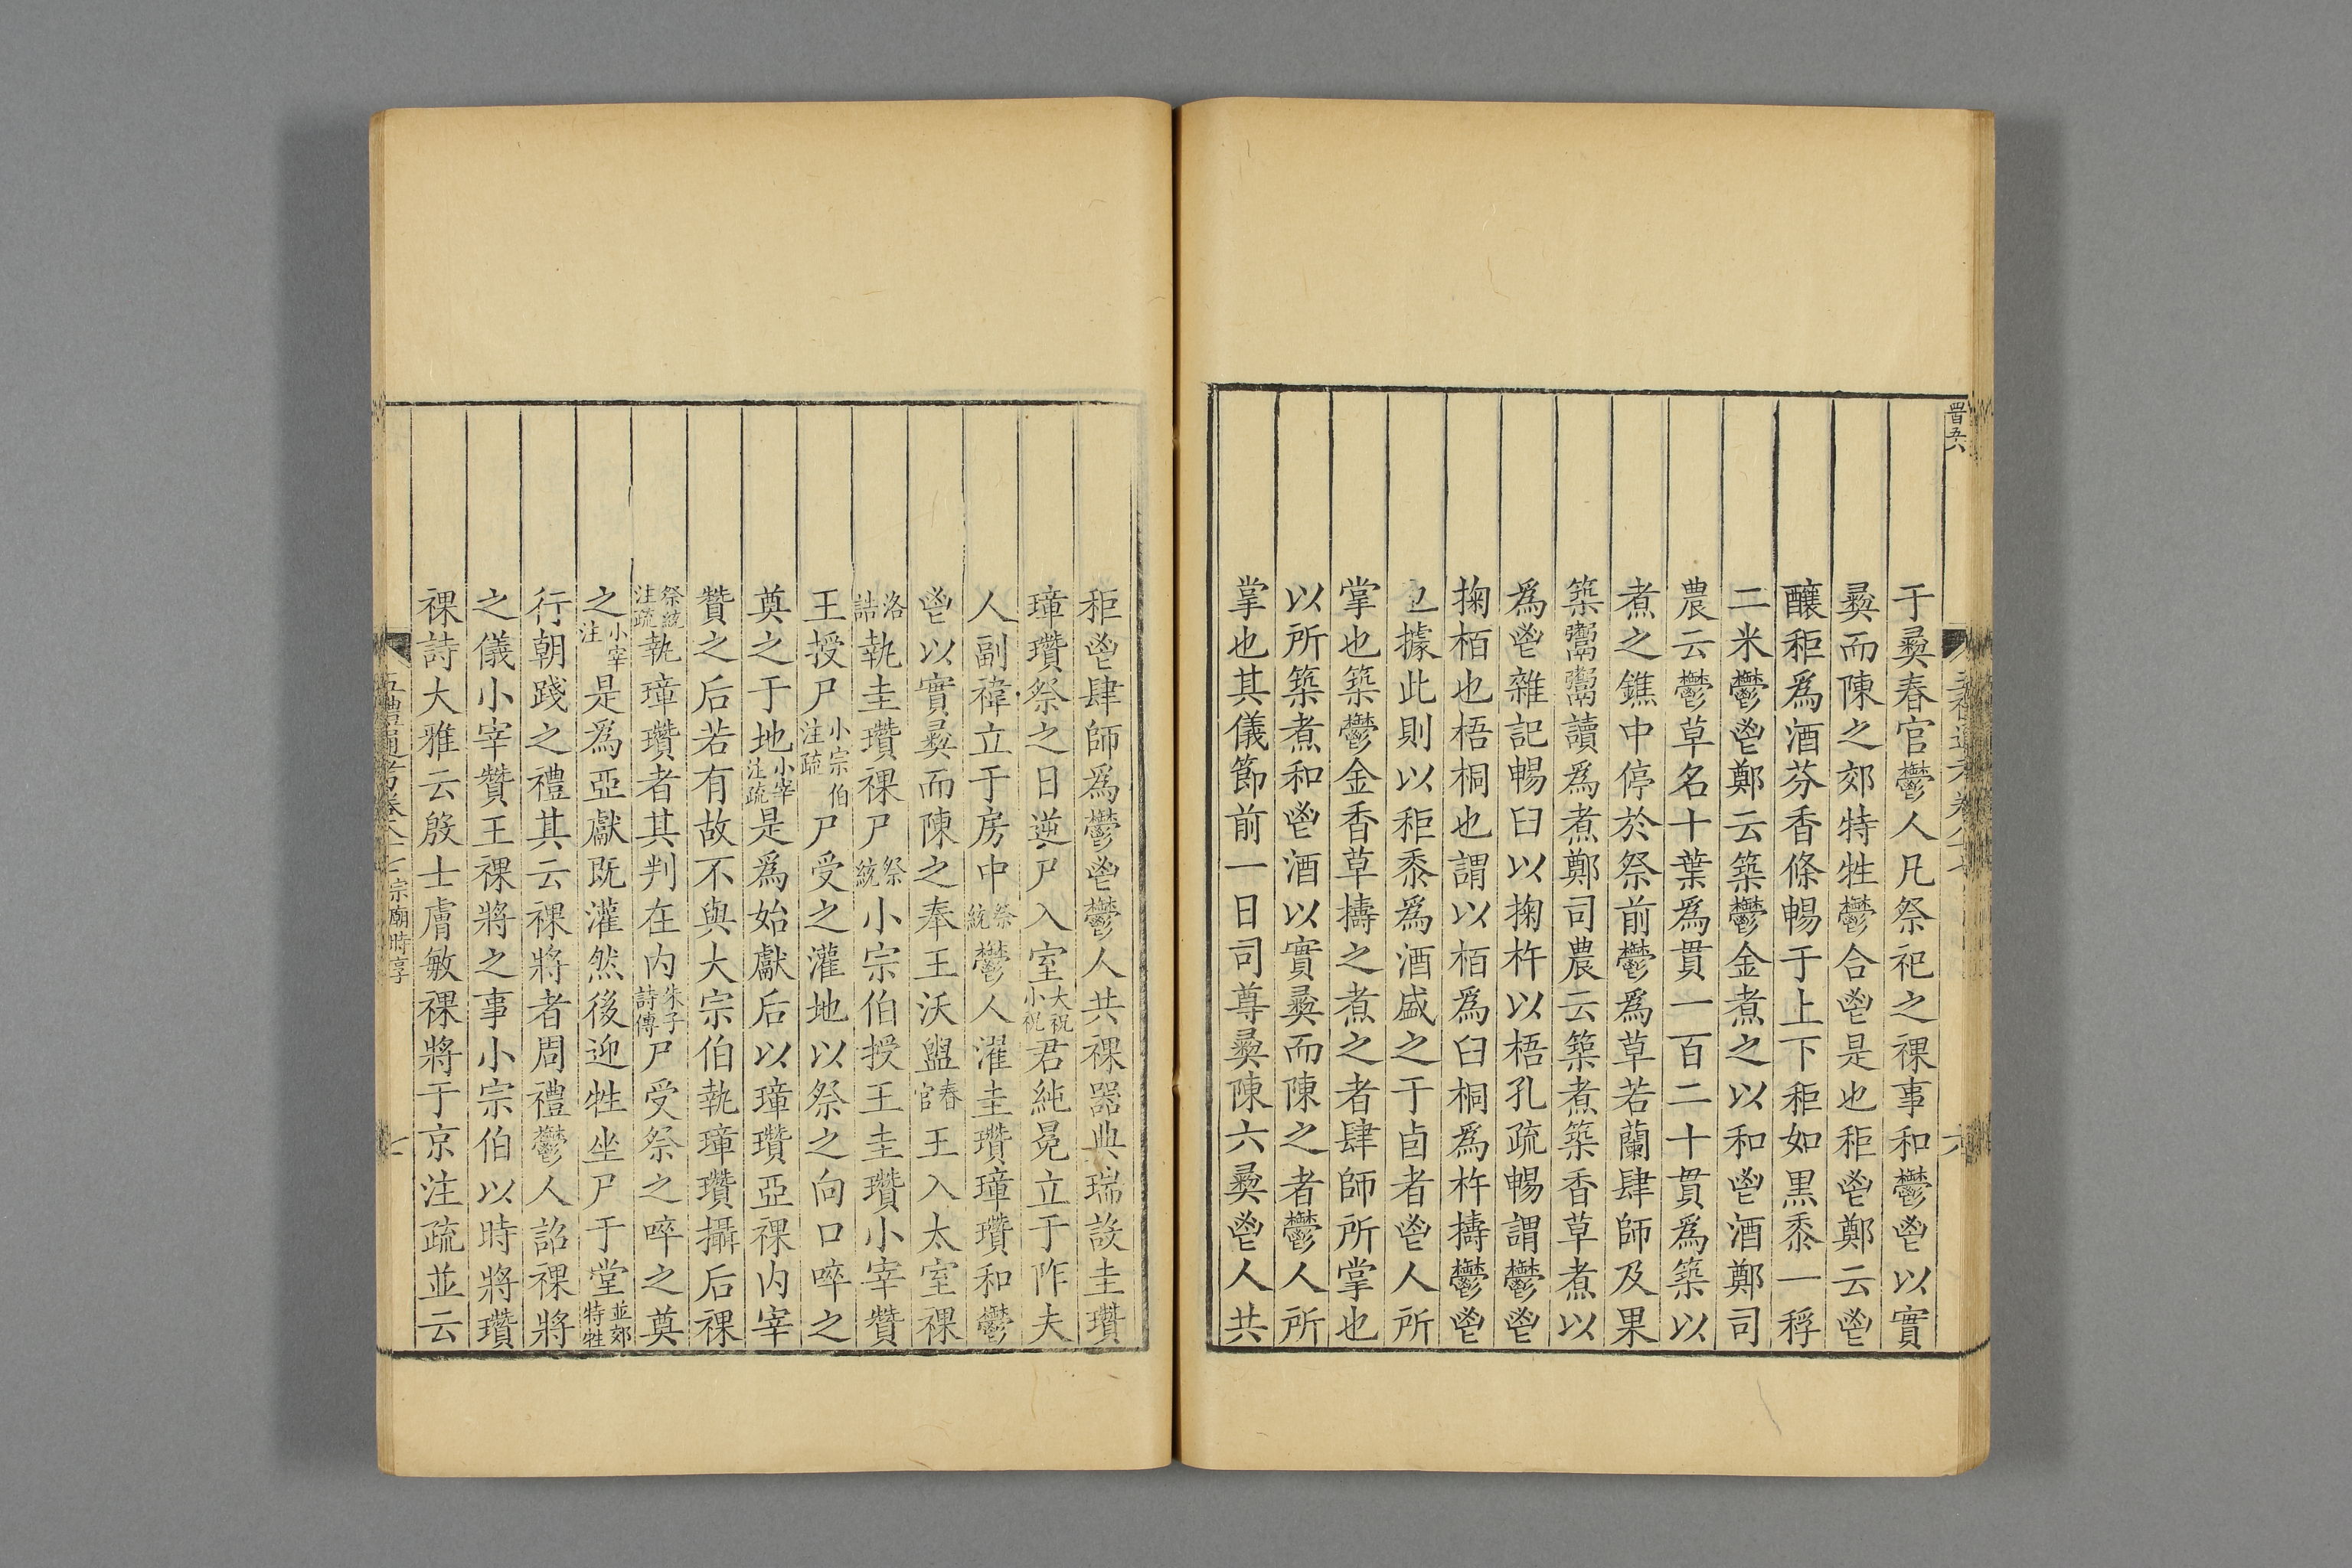 于彝春官鬱人凡祭祀之祼事和鬱鬯以實
彝而陳之郊特牲鬱合鬯是也秬鬯鄭云鬯
釀秬爲酒芬香條暢于上下秬如黒黍一稃
二米鬱鬯鄭云築鬱金煮之以和鬯酒鄭司
農云鬱草名十葉爲貫一百二十貫爲築以
煮之鐎中停於祭前鬱爲草若蘭肆師及果
築鬻鬻讀爲煮鄭司農云築煮築香草煮以
爲鬯雜記暢臼以掬杵以梧孔疏暢謂鬱鬯
掬栢也梧桐也謂以栢爲臼桐爲杵擣鬱鬯
也據此則以秬黍爲酒盛之于卣者鬯人所
掌也築鬱金香草擣之煮之者肆師所掌也
以所築煮和鬯酒以實彝而陳之者鬱人所
掌也其儀節前一日司尊彝陳六彝鬯人共
秬鬯肆師爲鬱鬯鬱人共祼器典瑞設圭瓚
璋瓚祭之日逆尸入室大祝小祝君純冕立于阼夫
人副褘立于房中祭統鬱人濯圭瓚璋瓚和鬱
鬯以實彝而陳之奉王沃盥春官王入太室祼
洛誥執圭瓚祼尸祭統小宗伯授王圭瓚小宰贊
王授尸小宗伯注疏尸受之灌地以祭之向口啐之
奠之于地小宰注疏是爲始獻后以璋瓚亞祼内宰
贊之后若有故不與大宗伯執璋瓚攝后祼
祭統注疏執璋瓚者其判在内朱子詩傳尸受祭之啐之奠
之小宰注是爲亞獻既灌然後迎牲坐尸于堂並郊特牲
行朝踐之禮其云祼將者周禮鬱人詔祼將
之儀小宰贊王祼將之事小宗伯以時將瓚
祼詩大雅云殷士膚敏祼將于京注疏並云
五禮通考卷八十七 宗廟時享
七